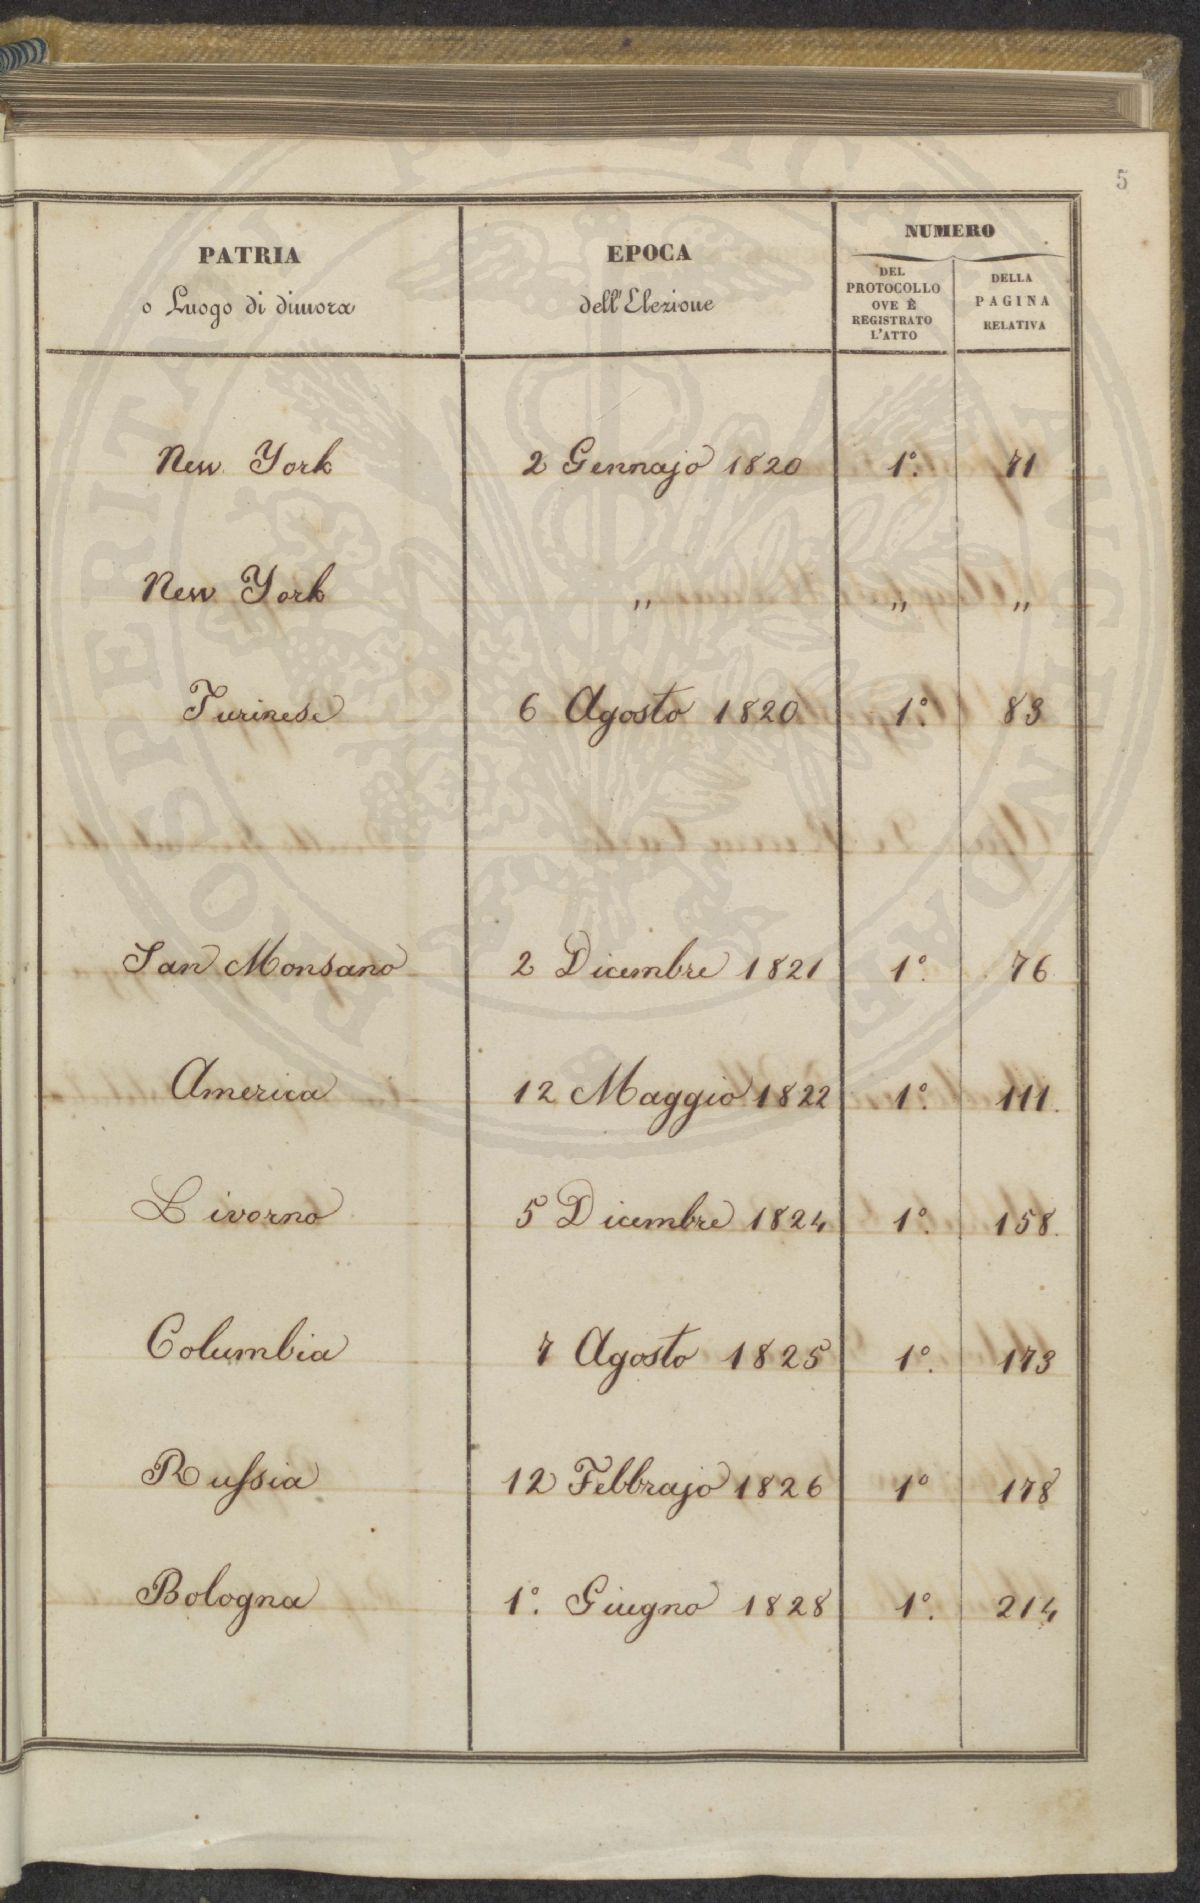 5
PATRIA
o Luogo di dimora
EPOCA
dell'Elezione
NUMERO
DEL
PROTOCOLLO
OVE È
REGISTRATO
L'ATTO
DELLA
PAGINA
RELATIVA
New York 2 Gennajo 1820 1°. 71
New York " " "
Turinese 6 Agosto 1820 1°. 83
San Monsano 2 Dicembre 1821 1°. 76
America 12 Maggio 1822 1°. 111.
Livorno 5 Dicembre 1824 1°. 158.
Columbia 7 Agosto 1825 1°. 173
Russia 12 Febbrajo 1826 1° 178
Bologna 1°. Giugno 1828 1°. 214